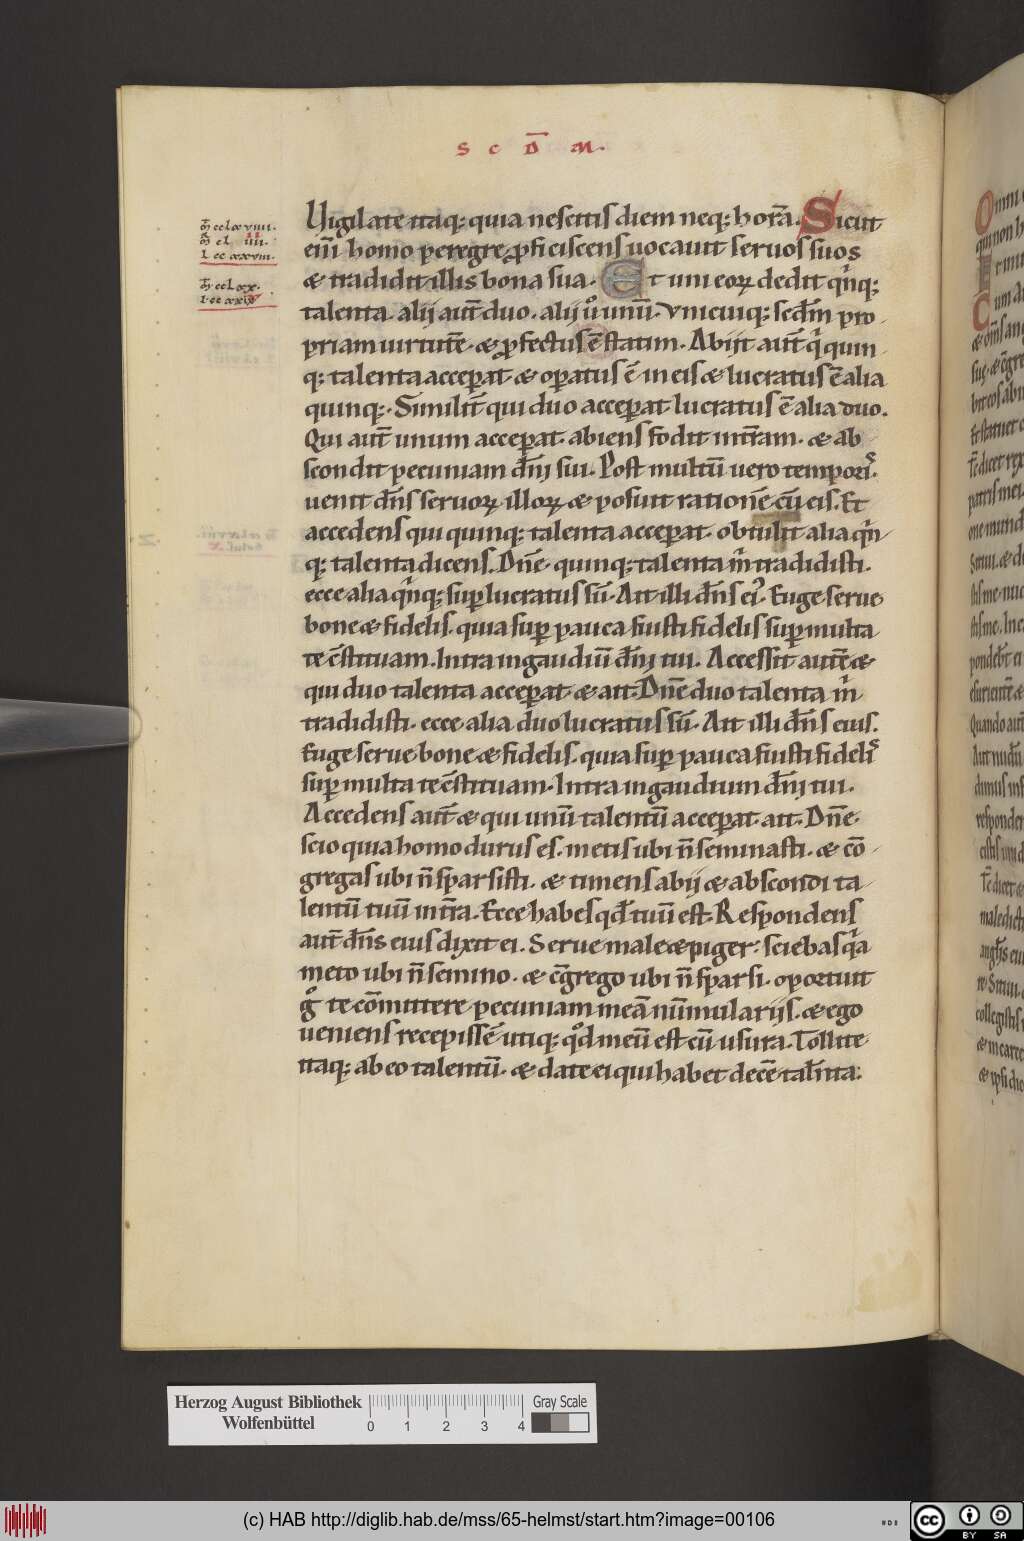 S C D̅ M.
m̅ cclxviiii.
m̅ cl iiii.
l cc xxviii.
m̅ cclxx.
l cc xxix
Uigilate itaq; quia nescitis diem neq; hora̅. Sicut
eni̅ homo peregre ꝓficiscens uocauit seruos suos
& tradidit illis bona sua. Et uni eoꝝ dedit qͥnq;
talenta. alij aut̅ duo. alij uͦ unu̅. Vnicuiq; secd̅m pro-
priam uirtute̅. & ꝓfectus e̅ statim. Abijt aut̅ qͥ quin-
q; talenta acceꝑat & oꝑatus e̅ in eis & lucratus e̅ alia
quinq;. Similit̅ qui duo acceꝑat lucratus e̅ alia duo.
Qui aut̅ unum acceꝑat. abiens fodit in t̅ram. & ab
scondit pecuniam dn̅i sui. Post multu̅ uero temporis.
uenit dn̅s seruoꝝ illoꝝ & posuit ratione̅ cu̅ eis. Et
accedens qui quinq; talenta acceꝑat. obtulit alia qͥn-
q; talenta dicens. Dn̅e. quinq; talenta m̅ tradidisti.
ecce alia qͥnq; suꝑ lucratus su̅. Ait illi dn̅s eiꝰ. Euge serue
bone & fidelis. quia suꝑ pauca fuisti fidelis suꝑ multa
te c̅stituam. Intra in gaudiu̅ dn̅i tui. Accessit aute̅ &
qui duo talenta acceꝑat & ait. Dn̅e duo talenta m̅
tradidisti. ecce alia duo lucratus su̅. Ait illi dn̅s eius.
Euge serue bone & fidelis. quia suꝑ pauca fuisti fidelis
suꝑ multa te c̅stituam. Intra in gaudium dn̅i tui.
Accedens aut̅ & qui unu̅ talentu̅ acceꝑat. ait. Dn̅e.
scio quia homo durus es. metis ubi n̅ seminasti. & co̅-
gregas ubi n̅ sparsisti. & timens abij & abscondi ta-
lentu̅ tuu̅ in t̅ra. Ecce habes qd̅ tuu̅ est. Respondens
aut̅ dn̅s eius dixit ei. Serue male & piger: sciebas qͣa
meto ubi n̅ semino. & c̅grego ubi n̅ sparsi. oportuit
gͦ te co̅mittere pecuniam mea̅ nu̅mularijs. & ego
ueniens recepisse̅ utiq; qͦd meu̅ est cu̅ usura. Tollite
itaq; ab eo talentu̅. & date ei qui habet dece̅ tal̅nta:
Herzog August Bibliothek
Wolfenbüttel
0 1 2 3 4
Gray Scale
(c) HAB http://diglib.hab.de/mss/65-helmst/start.htm?image=00106
cc BY SA